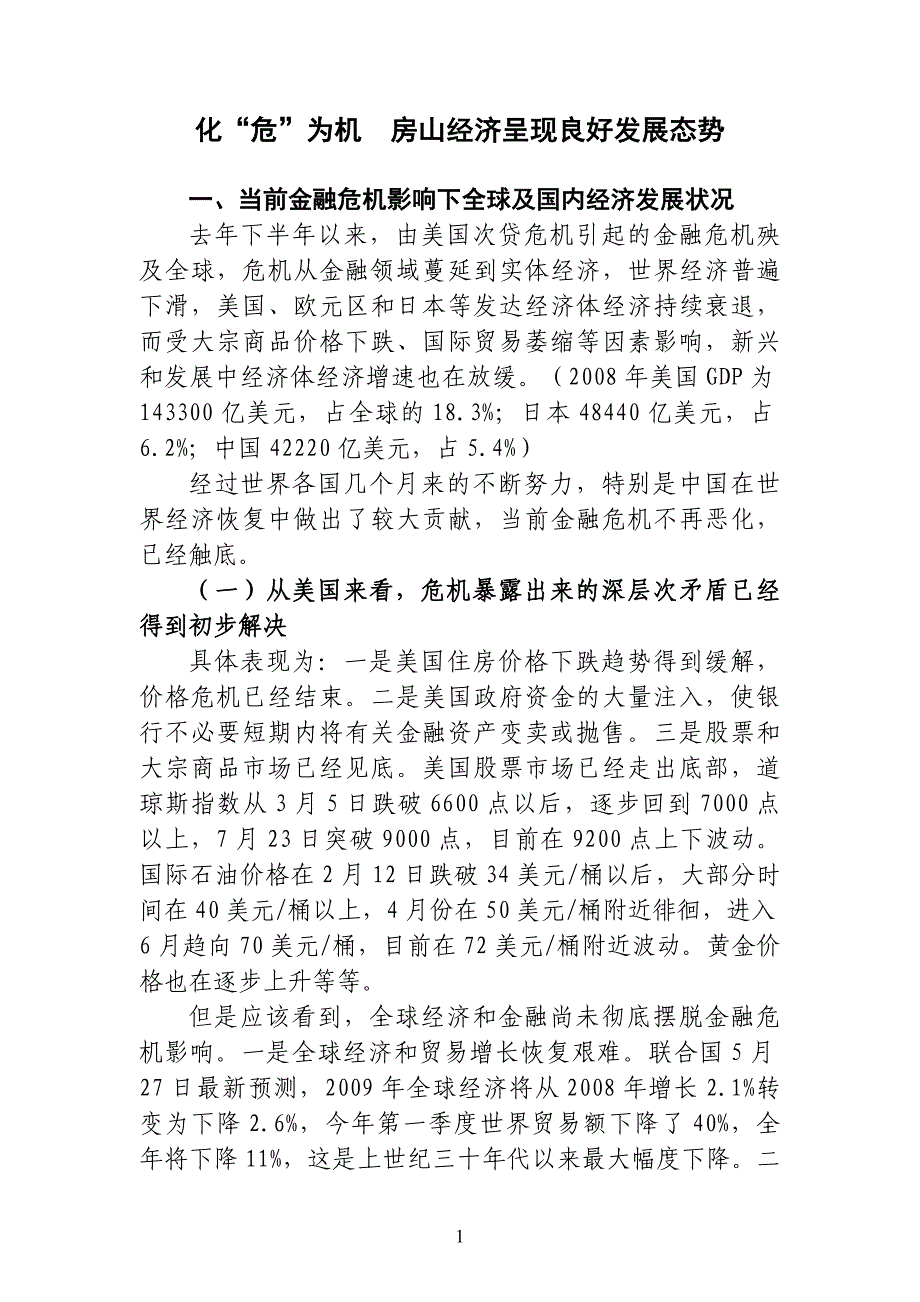 化“危”为机　房山经济呈现良好发展态势
一、当前金融危机影响下全球及国内经济发展状况
去年下半年以来，由美国次贷危机引起的金融危机殃
及全球，危机从金融领域蔓延到实体经济，世界经济普遍
下滑，美国、欧元区和日本等发达经济体经济持续衰退，
而受大宗商品价格下跌、国际贸易萎缩等因素影响，新兴
和发展中经济体经济增速也在放缓。（2008 年美国 GDP 为
143300 亿美元，占全球的 18.3%；日本 48440 亿美元，占
6.2%；中国 42220 亿美元，占 5.4%）
经过世界各国几个月来的不断努力，特别是中国在世
界经济恢复中做出了较大贡献，当前金融危机不再恶化，
已经触底。
（一）从美国来看，危机暴露出来的深层次矛盾已经
得到初步解决
具体表现为：一是美国住房价格下跌趋势得到缓解，
价格危机已经结束。二是美国政府资金的大量注入，使银
行不必要短期内将有关金融资产变卖或抛售。三是股票和
大宗商品市场已经见底。美国股票市场已经走出底部，道
琼斯指数从 3 月 5 日跌破 6600 点以后，逐步回到 7000 点
以上，7 月 23 日突破 9000 点，目前在 9200 点上下波动。
国际石油价格在 2 月 12 日跌破 34 美元/桶以后，大部分时
间在 40 美元/桶以上，4 月份在 50 美元/桶附近徘徊，进入
6 月趋向 70 美元/桶，目前在 72 美元/桶附近波动。黄金价
格也在逐步上升等等。
但是应该看到，全球经济和金融尚未彻底摆脱金融危
机影响。一是全球经济和贸易增长恢复艰难。联合国 5 月
27 日最新预测，2009 年全球经济将从 2008 年增长 2.1%转
变为下降 2.6%，今年第一季度世界贸易额下降了 40%，全
年将下降 11%，这是上世纪三十年代以来最大幅度下降。二
1